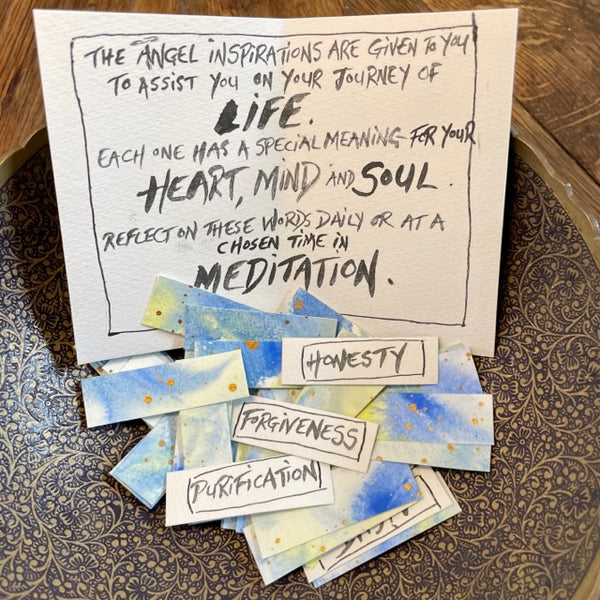 THE ANGEL INSPIRATIONS ARE GIVEN TO YOU
TO ASSIST YOU ON YOUR JOURNEY OF
LIFE.
EACH ONE HAS A SPECIAL MEANING FOR YOUR
HEART, MIND AND SOUL.
REFLECT ON THESE WORDS DAILY OR AT A
CHOSEN TIME IN
MEDITATION.
HONESTY
FORGIVENESS
PURIFICATION